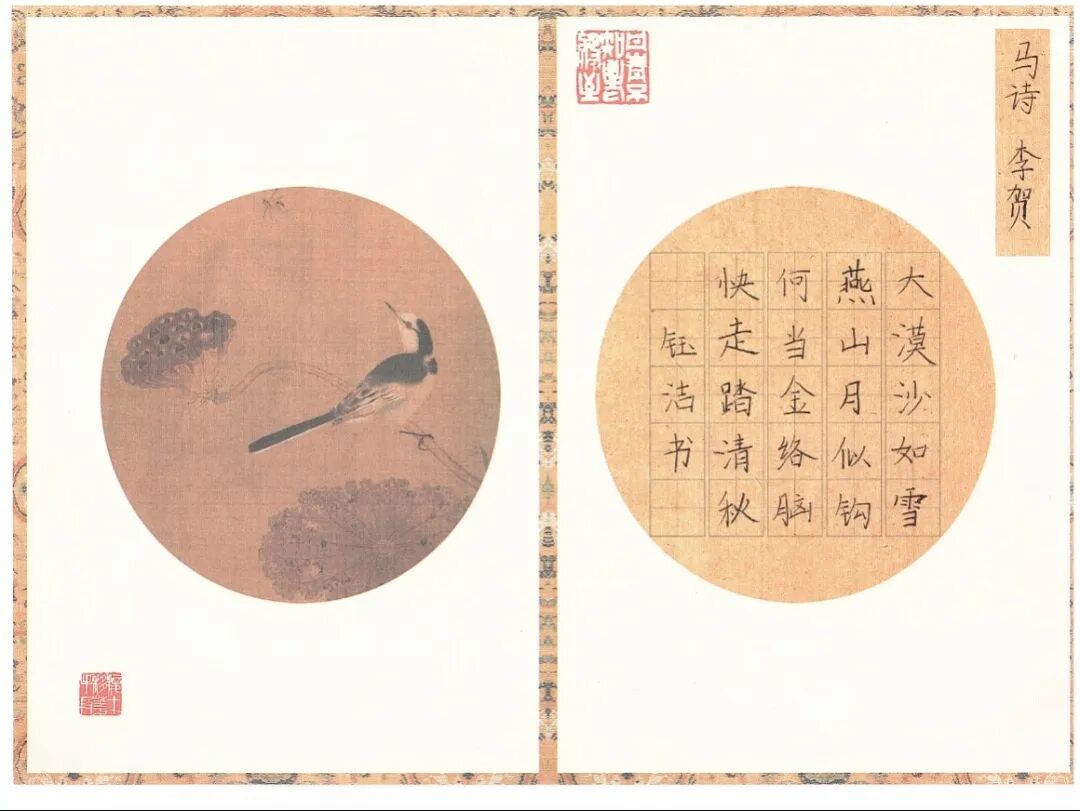 马诗 李贺
大漠沙如雪
燕山月似钩
何当金络脑
快走踏清秋
钰洁书